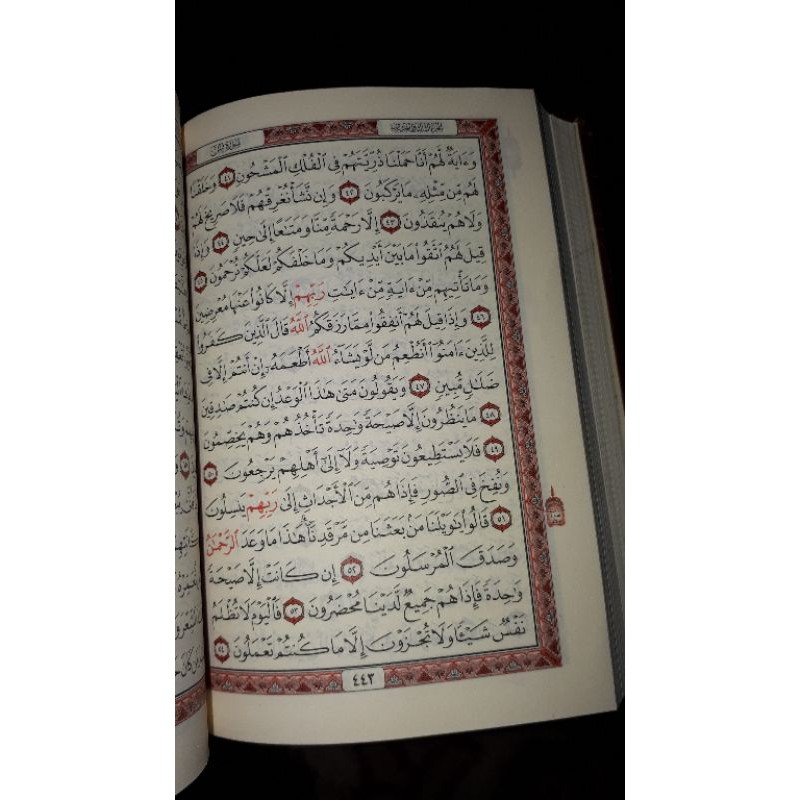 سورة يس
الجزء الثالث والعشرون
وَءَايَةٌ لَّهُمْ أَنَّا حَمَلْنَا ذُرِّيَّتَهُمْ فِي الْفُلْكِ الْمَشْحُونِ ٤١ وَخَلَقْنَا
لَهُم مِّن مِّثْلِهِ مَا يَرْكَبُونَ ٤٢ وَإِن نَّشَأْ نُغْرِقْهُمْ فَلَا صَرِيخَ لَهُمْ
وَلَا هُمْ يُنقَذُونَ ٤٣ إِلَّا رَحْمَةً مِّنَّا وَمَتَاعًا إِلَىٰ حِينٍ ٤٤ وَإِذَا
قِيلَ لَهُمُ اتَّقُوا مَا بَيْنَ أَيْدِيكُمْ وَمَا خَلْفَكُمْ لَعَلَّكُمْ تُرْحَمُونَ ٤٥
وَمَا تَأْتِيهِم مِّنْ ءَايَةٍ مِّنْ ءَايَٰتِ رَبِّهِمْ إِلَّا كَانُوا عَنْهَا مُعْرِضِينَ
٤٦ وَإِذَا قِيلَ لَهُمْ أَنفِقُوا مِمَّا رَزَقَكُمُ اللَّهُ قَالَ الَّذِينَ كَفَرُوا
لِلَّذِينَ ءَامَنُوا أَنُطْعِمُ مَن لَّوْ يَشَاءُ اللَّهُ أَطْعَمَهُ إِنْ أَنتُمْ إِلَّا فِي
ضَلَٰلٍ مُّبِينٍ ٤٧ وَيَقُولُونَ مَتَىٰ هَٰذَا الْوَعْدُ إِن كُنتُمْ صَٰدِقِينَ
٤٨ مَا يَنظُرُونَ إِلَّا صَيْحَةً وَٰحِدَةً تَأْخُذُهُمْ وَهُمْ يَخِصِّمُونَ
٤٩ فَلَا يَسْتَطِيعُونَ تَوْصِيَةً وَلَا إِلَىٰ أَهْلِهِمْ يَرْجِعُونَ ٥٠
وَنُفِخَ فِي الصُّورِ فَإِذَا هُم مِّنَ الْأَجْدَاثِ إِلَىٰ رَبِّهِمْ يَنسِلُونَ
٥١ قَالُوا يَٰوَيْلَنَا مَن بَعَثَنَا مِن مَّرْقَدِنَا هَٰذَا مَا وَعَدَ الرَّحْمَٰنُ
وَصَدَقَ الْمُرْسَلُونَ ٥٢ إِن كَانَتْ إِلَّا صَيْحَةً
وَٰحِدَةً فَإِذَا هُمْ جَمِيعٌ لَّدَيْنَا مُحْضَرُونَ ٥٣ فَالْيَوْمَ لَا تُظْلَمُ
نَفْسٌ شَيْـًٔا وَلَا تُجْزَوْنَ إِلَّا مَا كُنتُمْ تَعْمَلُونَ ٥٤
٤٤٣